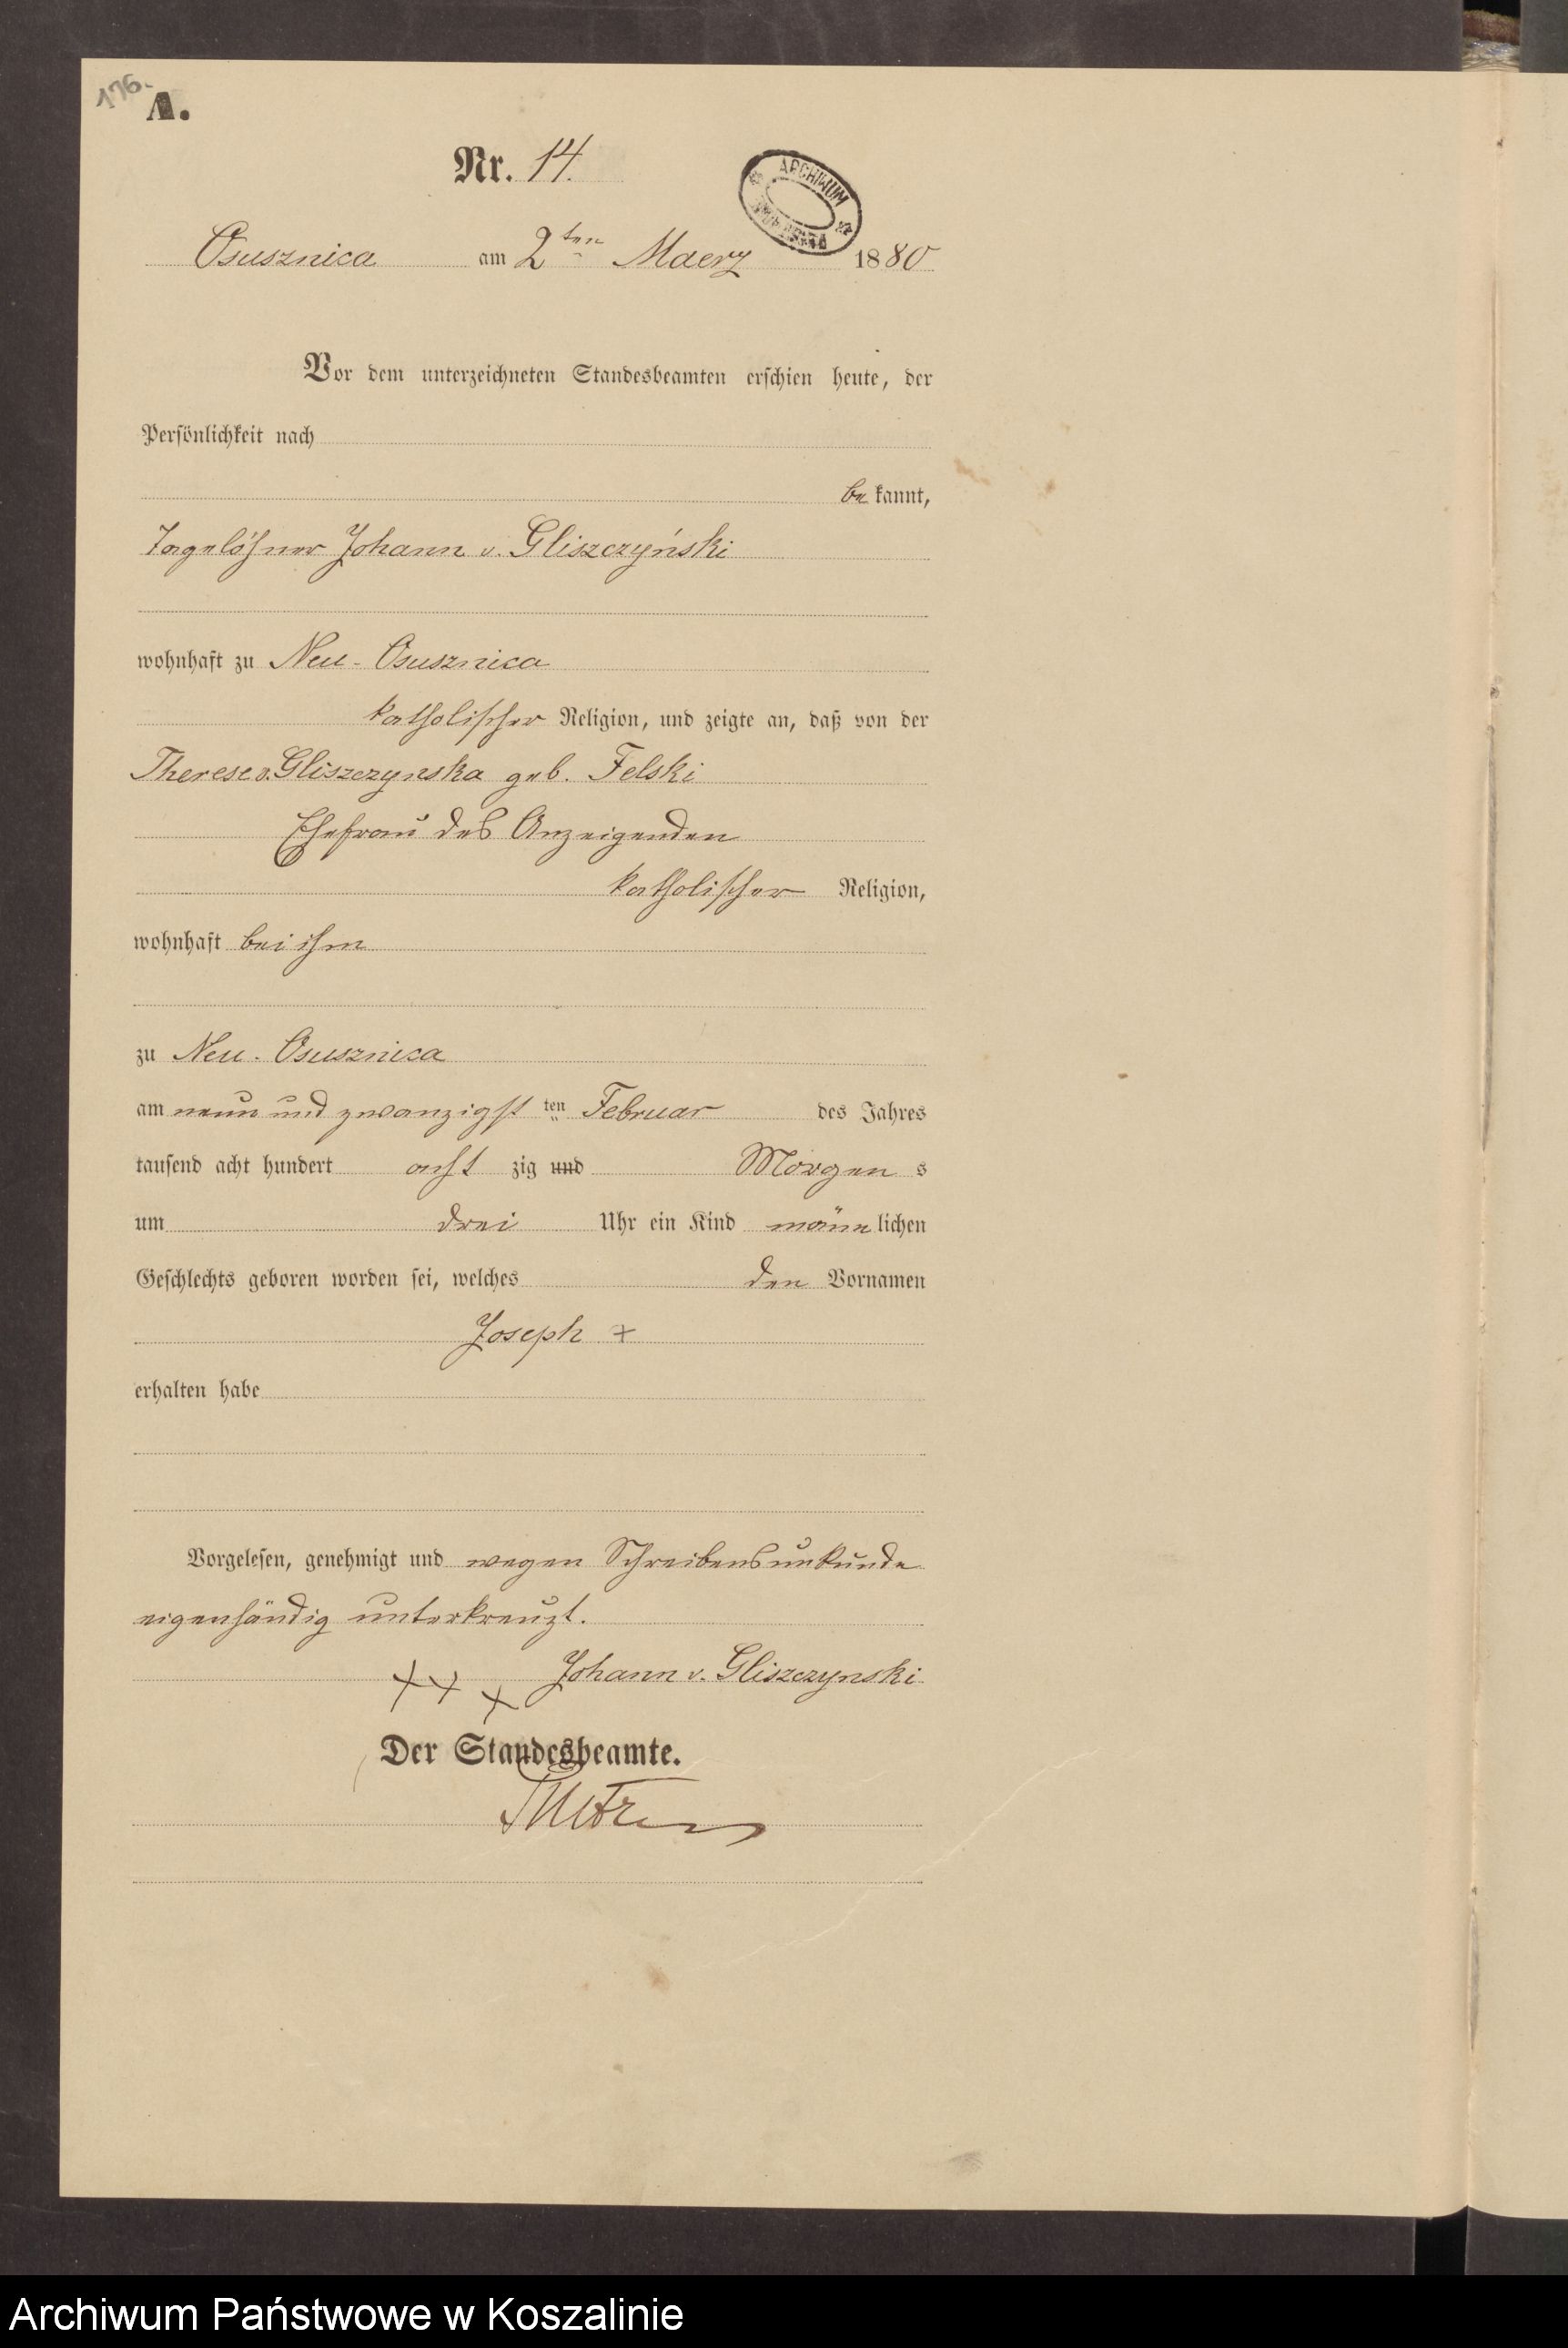 176.
A.
Nr. 14.
ARCHIWUM
Osusznica am 2ten Maerz 1880
Vor dem unterzeichneten Standesbeamten erschien heute, der
Persönlichkeit nach
be kannt,
Tagelöhner Johann v. Gliszczyński
wohnhaft zu Neu-Osusznica
katholischer Religion, und zeigte an, daß von der
Therese v. Gliszczynska geb. Felski
Ehefrau des Anzeigenden
katholischer Religion,
wohnhaft bei ihm
zu Neu-Osusznica
am neun und zwanzigst ten Februar des Jahres
tausend acht hundert acht zig und Morgen s
um drei Uhr ein Kind männ lichen
Geschlechts geboren worden sei, welches den Vornamen
Joseph +
erhalten habe
Vorgelesen, genehmigt und wegen Schreibensunkunde
eigenhändig unterkreuzt.
+ + + Johann v. Gliszczynski
Der Standesbeamte.
Archiwum Państwowe w Koszalinie